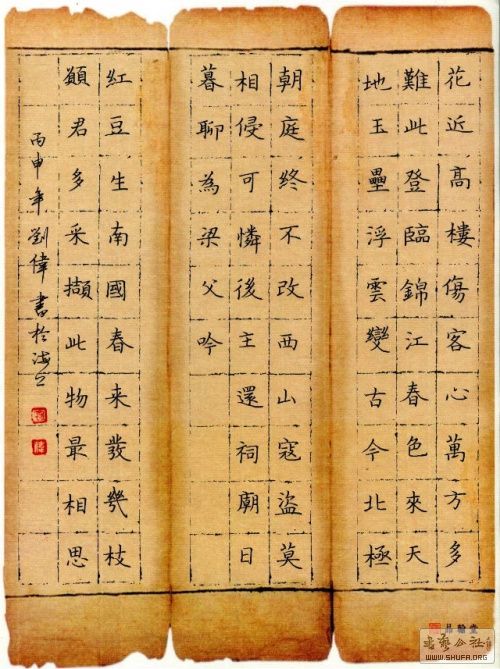 花近高樓傷客心萬方多
難此登臨錦江春色來天
地玉壘浮雲變古今北極
朝庭終不改西山寇盜莫
相侵可憐後主還祠廟日
暮聊為梁父吟
紅豆生南國春来發幾枝
願君多采擷此物最相思
丙申年劉偉書於海上
WWW.SHUFA.ORG